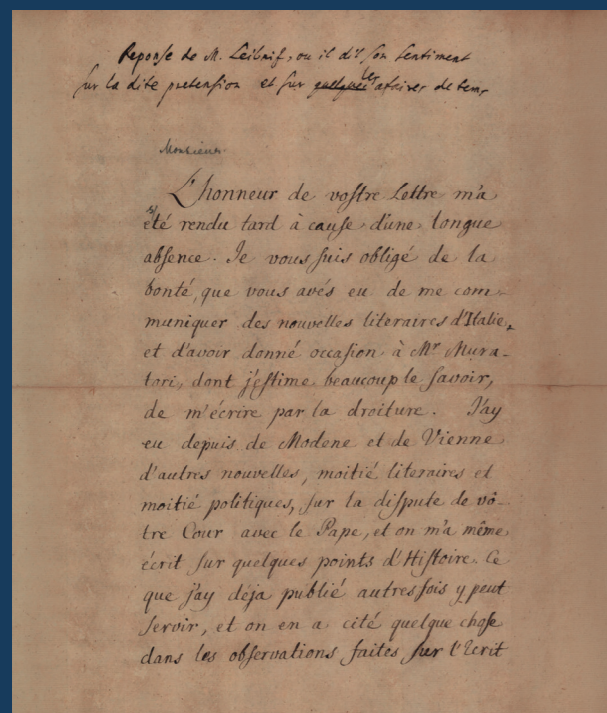 Reponse de M. Leibniz, ou il dit son sentiment
sur la dite pretension et sur quelques les afaires de tems
Monsieur
L'honneur de vostre Lettre m'a
été rendu tard à cause d'une longue
absence. Je vous suis obligé de la
bonté, que vous avés eu de me com-
muniquer des nouvelles literaires d'Italie,
et d'avoir donné occasion à Mr Mura-
tori, dont j'estime beaucoup le savoir,
de m'écrire par la droiture. J'ay
eu depuis de Modene et de Vienne
d'autres nouvelles, moitié literaires et
moitié politiques, sur la dispute de vô-
tre Cour avec le Pape, et on m'a même
écrit sur quelques points d'Histoire. Ce
que j'ay déja publié autres fois y peut
servir, et on en a cité quelque chose
dans les observations faites sur l'Ecrit